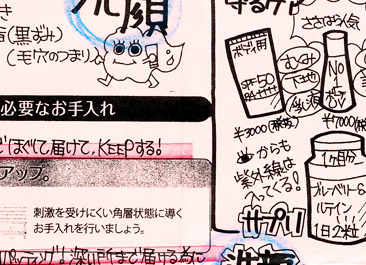 洗顔
き
(黒ずみ)
(毛穴のつまり)
必要なお手入れ
ほぐして届けて、KEEPする!
アップ。
刺激を受けにくい角層状態に導く
お手入れを行いましょう。
パッティング! 深い所まで届ける為に
ボディ用
SPF50
PA++++
¥3000(税抜)
むくみ
下地
乳液
NO
¥7000(税抜)
からも
紫外線は
入ってくる!
サプリ
1ヶ月分
ブルーベリー&
ルテイン
1日2粒
洗顔